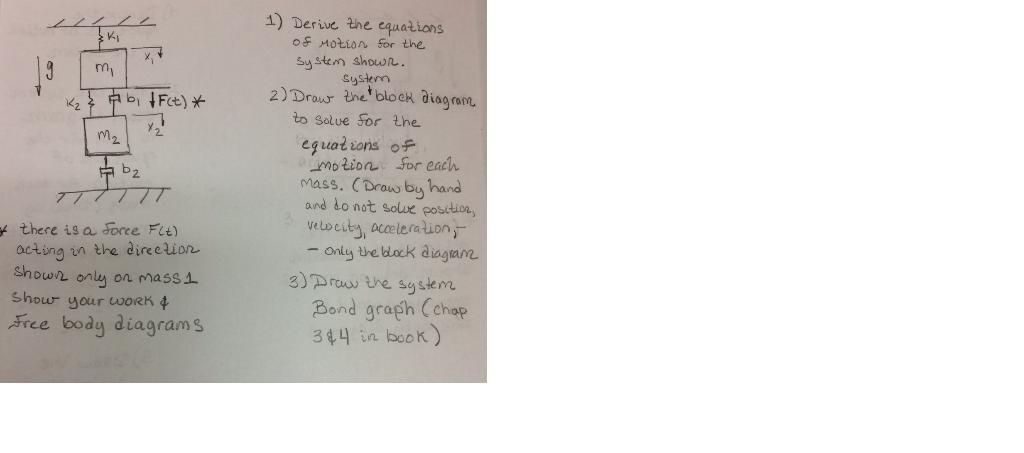 K1
x1
g
m1
K2
b1
F(t) *
x2
m2
b2
* there is a force F(t)
acting in the direction
shown only on mass 1
show your work &
Free body diagrams
1) Derive the equations
of motion for the
system shown.
system
2) Draw the block diagram
to solve for the
equations of
motion for each
mass. (Draw by hand
and do not solve position,
velocity, acceleration, -
- only the block diagram
3) Draw the system
Bond graph (chap
3 & 4 in book)